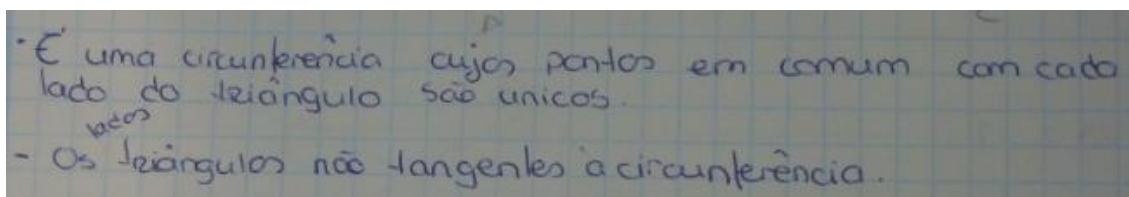 · É uma circunferência cujos pontos em comum com cada
lado do triângulo são unicos.
lados
- Os triângulos não tangentes à circunferência.